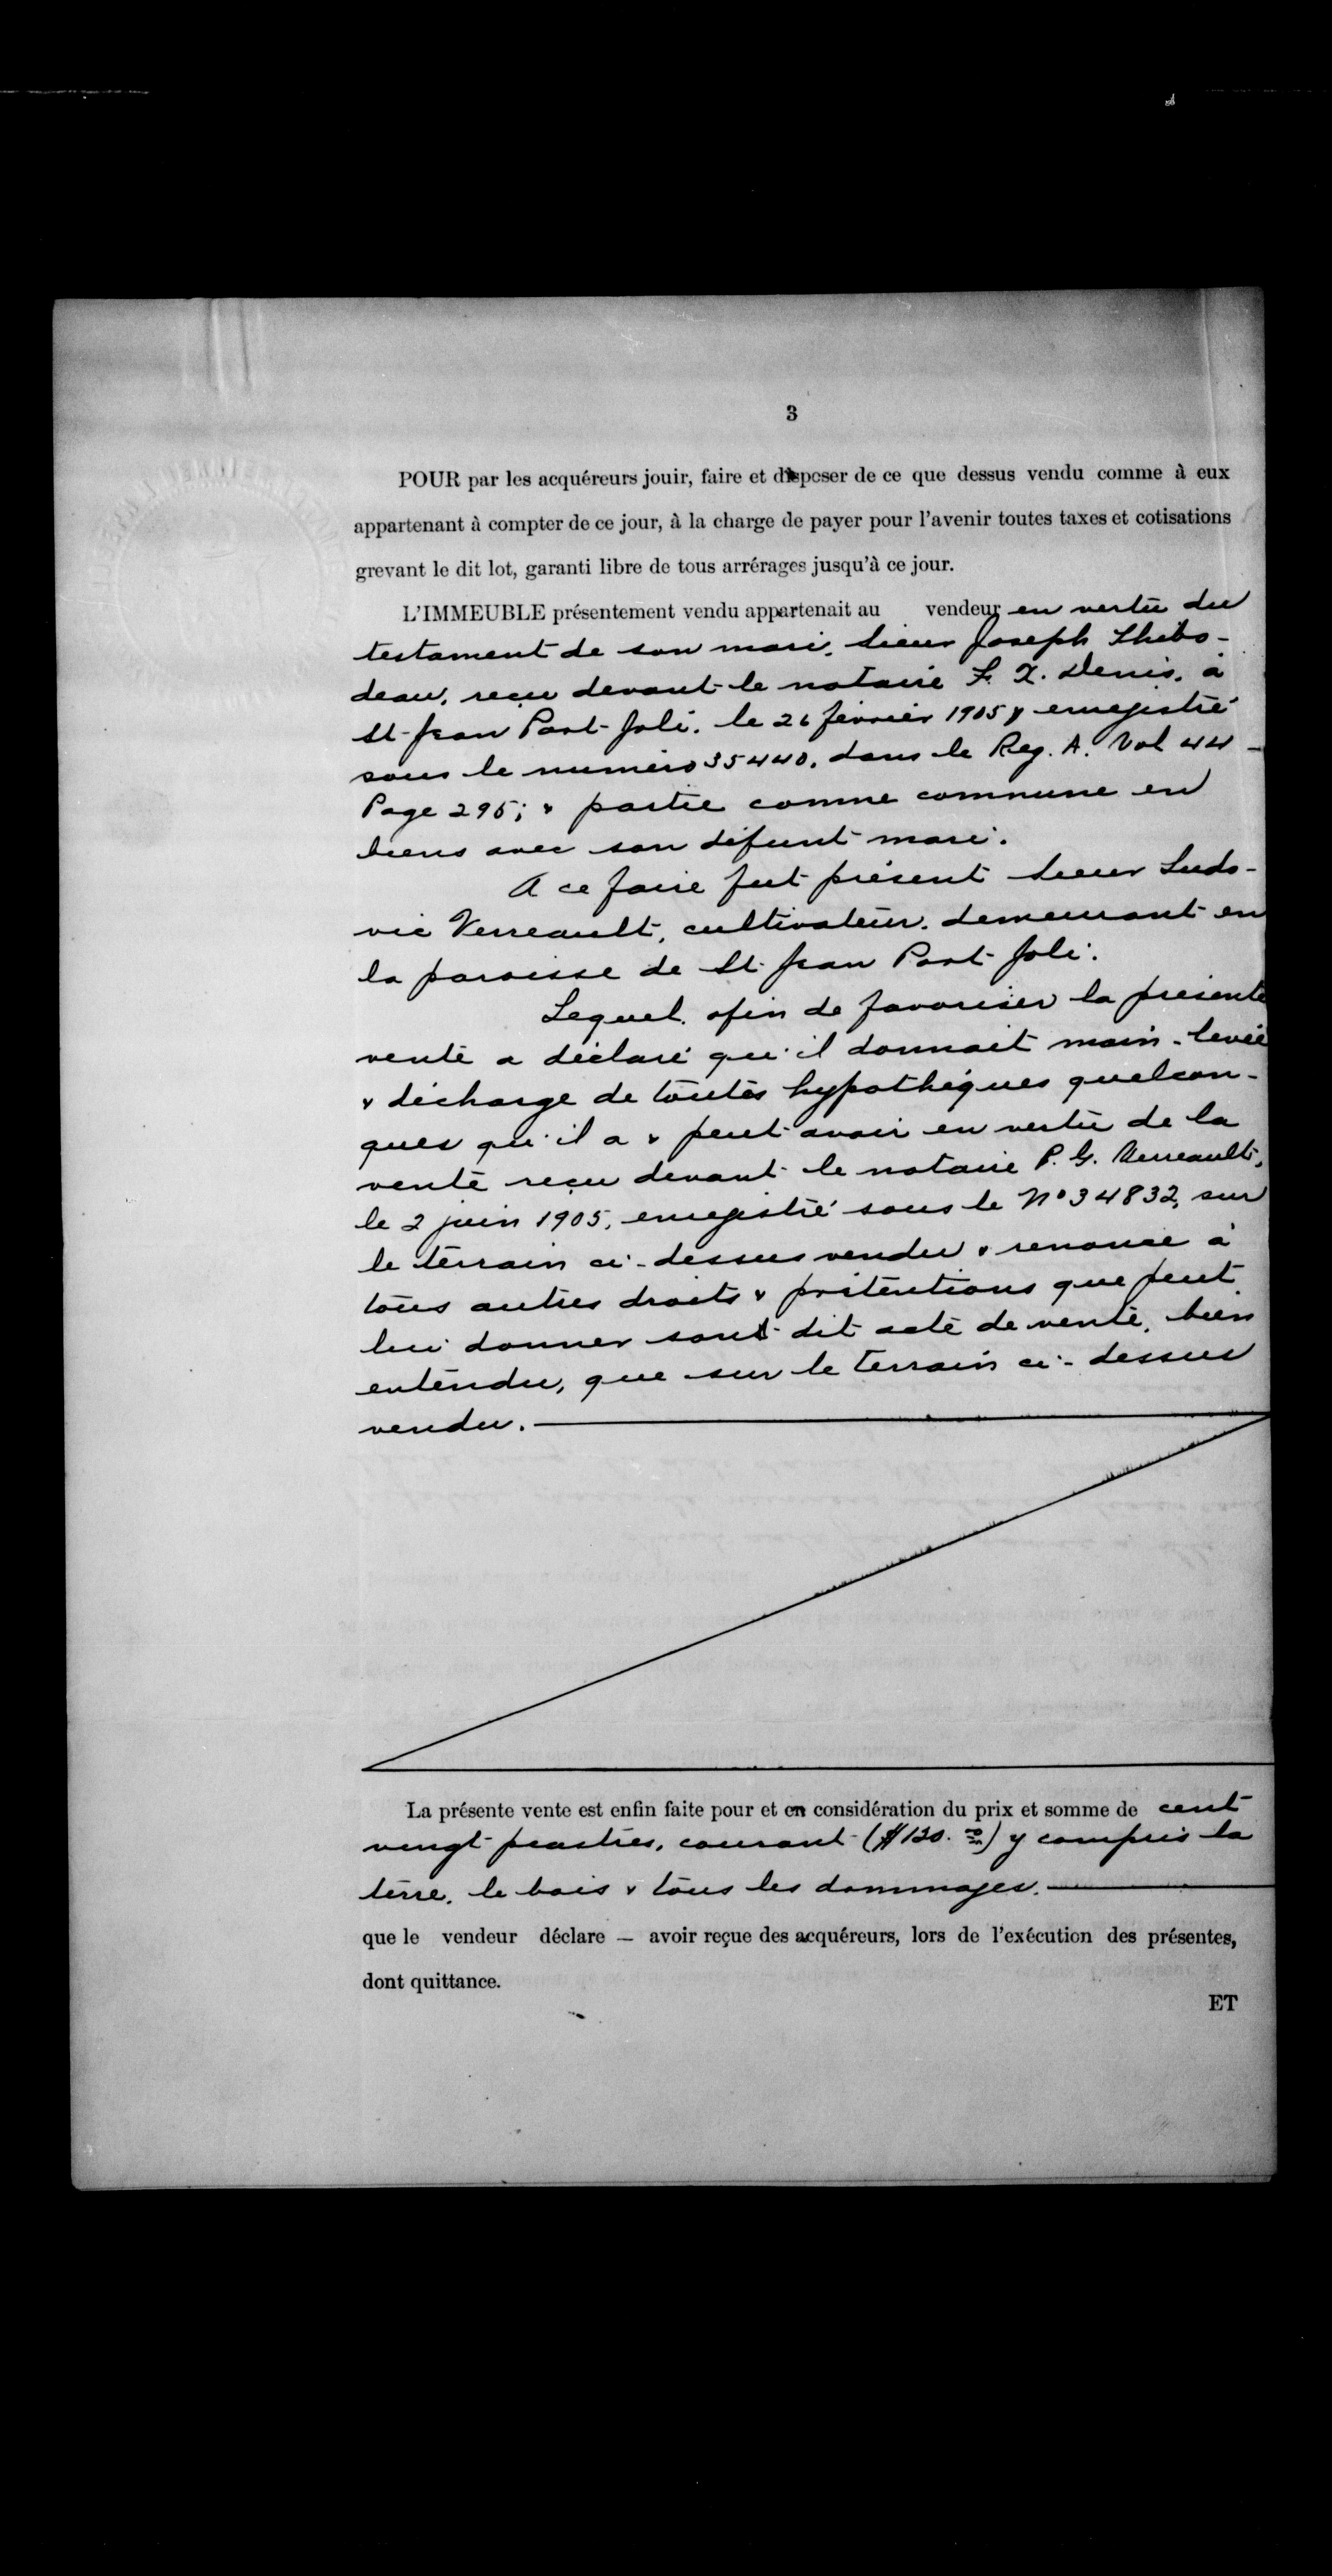 3
POUR par les acquéreurs jouir, faire et disposer de ce que dessus vendu comme à eux
appartenant à compter de ce jour, à la charge de payer pour l'avenir toutes taxes et cotisations
grevant le dit lot, garanti libre de tous arrérages jusqu'à ce jour.
L'IMMEUBLE présentement vendu appartenait au vendeur en vertu du
testament de son mari, Sieur Joseph Thibo-
deau, reçu devant le notaire F. X. Denis, à
St-Jean Port-Joli, le 26 février 1905 & enregistré
sous le numéro 35440, dans le Reg. A. Vol 44 -
Page 295; & partie comme commune en
biens avec son défunt mari.
A ce faire fut présent Sieur Ludo-
vic Verreault, cultivateur, demeurant en
la paroisse de St-Jean Port-Joli.
Lequel, afin de favoriser la présente
vente a déclaré qu'il donnait main-levée
& décharge de toutes hypothèques quelcon-
ques qu'il a & peut avoir en vertu de la
vente reçu devant le notaire P. G. Verreault,
le 2 juin 1905, enregistré sous le No 34832, sur
le terrain ci-dessus vendu & renonce à
tous autres droits & prétentions que peut
lui donner dit acte de vente, bien
entendu, que sur le terrain ci-dessus
vendu.
La présente vente est enfin faite pour et en considération du prix et somme de cent
vingt piastres, courant ($120.00) y compris la
terre, le bois & tous les dommages.
que le vendeur déclare — avoir reçue des acquéreurs, lors de l'exécution des présentes,
dont quittance.
ET